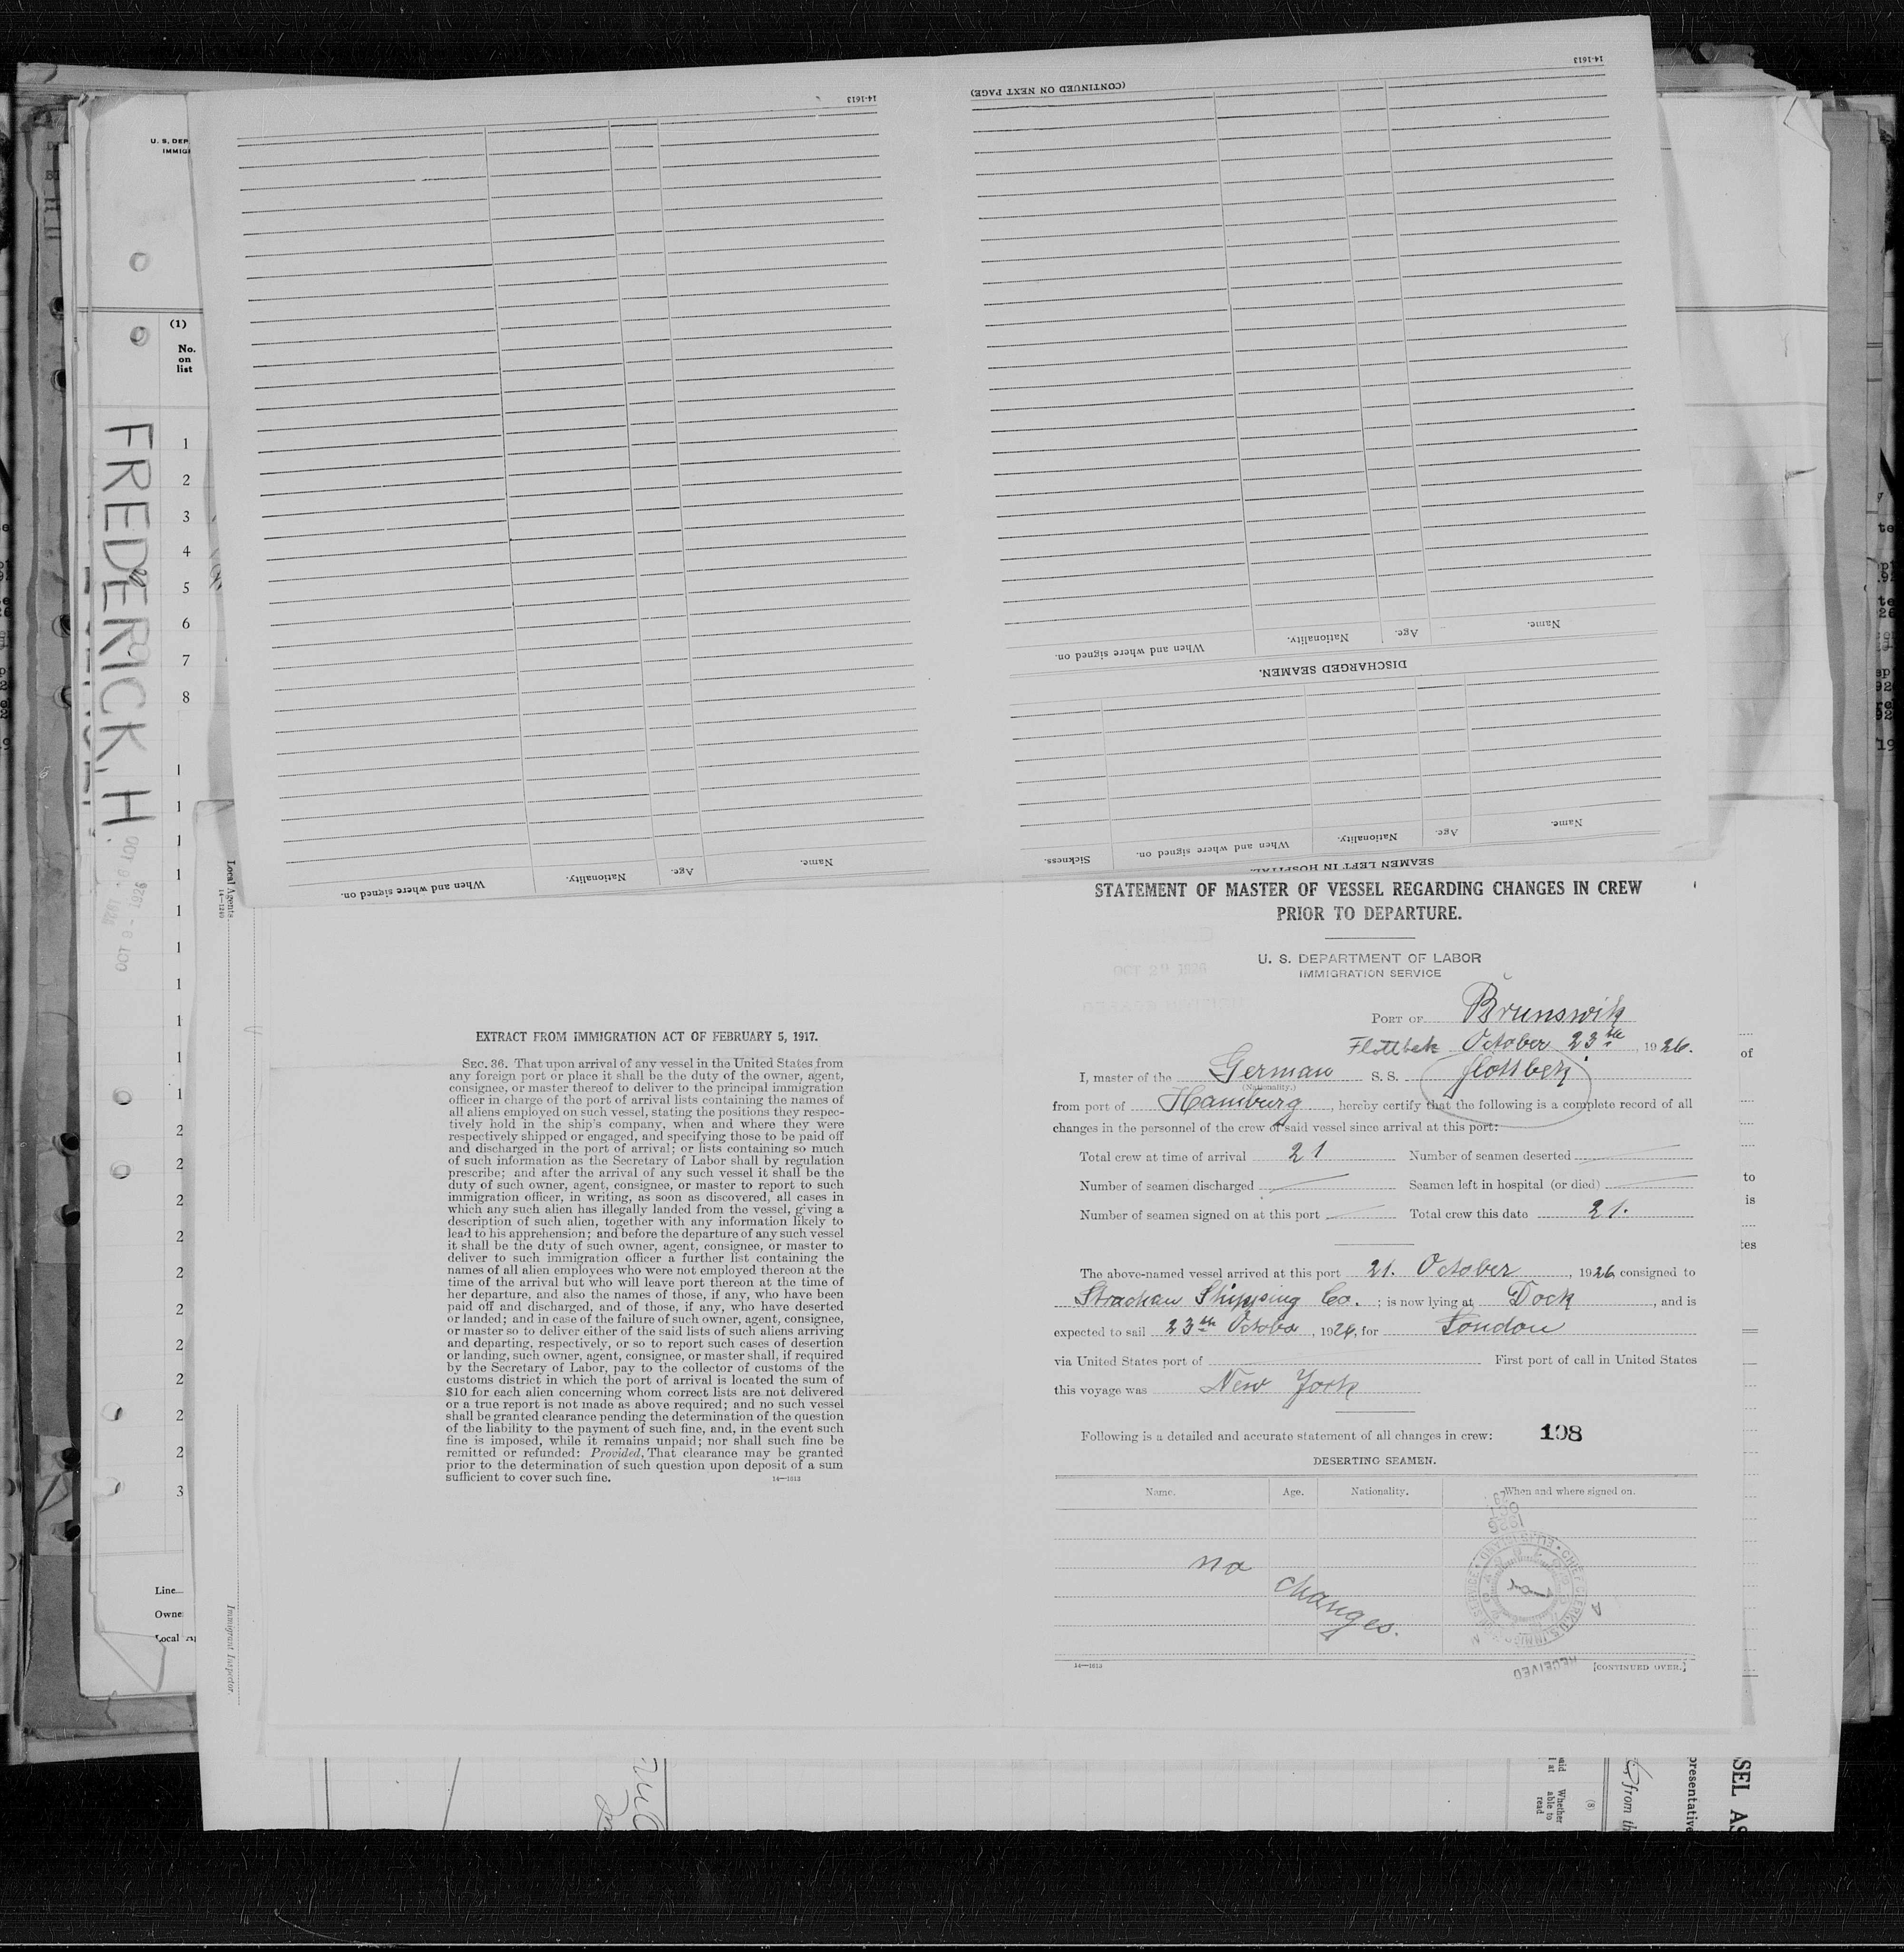 14-1613
(CONTINUED ON NEXT PAGE)
14-1613
U. S. DEP
IMMIG
(1)
No.
on
list
FREDERICK, H.
1
2
3
4
5
6
7
8
When and where signed on.
Nationality.
Age.
Name.
DISCHARGED SEAMEN.
Sickness.
When and where signed on.
Nationality.
Age.
Name.
SEAMEN LEFT IN HOSPITAL.
When and where signed on.
Nationality.
Age.
Name.
Local Agents
14-1240
Immigrant Inspector.
Line
Owne
Local
EXTRACT FROM IMMIGRATION ACT OF FEBRUARY 5, 1917.
SEC. 36. That upon arrival of any vessel in the United States from
any foreign port or place it shall be the duty of the owner, agent,
consignee, or master thereof to deliver to the principal immigration
officer in charge of the port of arrival lists containing the names of
all aliens employed on such vessel, stating the positions they respec-
tively hold in the ship's company, when and where they were
respectively shipped or engaged, and specifying those to be paid off
and discharged in the port of arrival; or lists containing so much
of such information as the Secretary of Labor shall by regulation
prescribe; and after the arrival of any such vessel it shall be the
duty of such owner, agent, consignee, or master to report to such
immigration officer, in writing, as soon as discovered, all cases in
which any such alien has illegally landed from the vessel, giving a
description of such alien, together with any information likely to
lead to his apprehension; and before the departure of any such vessel
it shall be the duty of such owner, agent, consignee, or master to
deliver to such immigration officer a further list containing the
names of all alien employees who were not employed thereon at the
time of the arrival but who will leave port thereon at the time of
her departure, and also the names of those, if any, who have been
paid off and discharged, and of those, if any, who have deserted
or landed; and in case of the failure of such owner, agent, consignee,
or master so to deliver either of the said lists of such aliens arriving
and departing, respectively, or so to report such cases of desertion
or landing, such owner, agent, consignee, or master shall, if required
by the Secretary of Labor, pay to the collector of customs of the
customs district in which the port of arrival is located the sum of
$10 for each alien concerning whom correct lists are not delivered
or a true report is not made as above required; and no such vessel
shall be granted clearance pending the determination of the question
of the liability to the payment of such fine, and, in the event such
fine is imposed, while it remains unpaid; nor shall such fine be
remitted or refunded: Provided, That clearance may be granted
prior to the determination of such question upon deposit of a sum
sufficient to cover such fine.
14-1613
STATEMENT OF MASTER OF VESSEL REGARDING CHANGES IN CREW
PRIOR TO DEPARTURE.
U. S. DEPARTMENT OF LABOR
IMMIGRATION SERVICE
PORT OF Brunswik
Flottbek October 23th, 1926.
I, master of the German S. S. flottbek
(Nationality.)
from port of Hamburg, hereby certify that the following is a complete record of all
changes in the personnel of the crew of said vessel since arrival at this port:
Total crew at time of arrival 21 Number of seamen deserted
Number of seamen discharged Seamen left in hospital (or died)
Number of seamen signed on at this port Total crew this date 21.
The above-named vessel arrived at this port 21. October, 1926 consigned to
Strachan Shipping Co.; is now lying at Dock, and is
expected to sail 23th Octobo, 1926, for London
via United States port of First port of call in United States
this voyage was New York
Following is a detailed and accurate statement of all changes in crew: 108
DESERTING SEAMEN.
Name. Age. Nationality. When and where signed on.
no changes.
RECEIVED
14-1613
[CONTINUED OVER.]
of
to
is
tes
aid Whether
at able to
read
(8)
from th
presentative
SEL AS